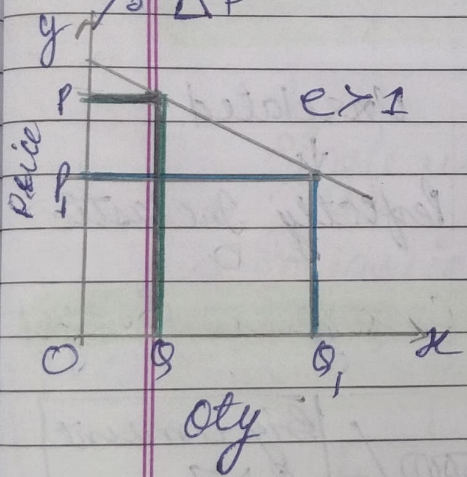 Δ P
y
P
e>1
Price
P1
O
Q
Q1
x
Qty